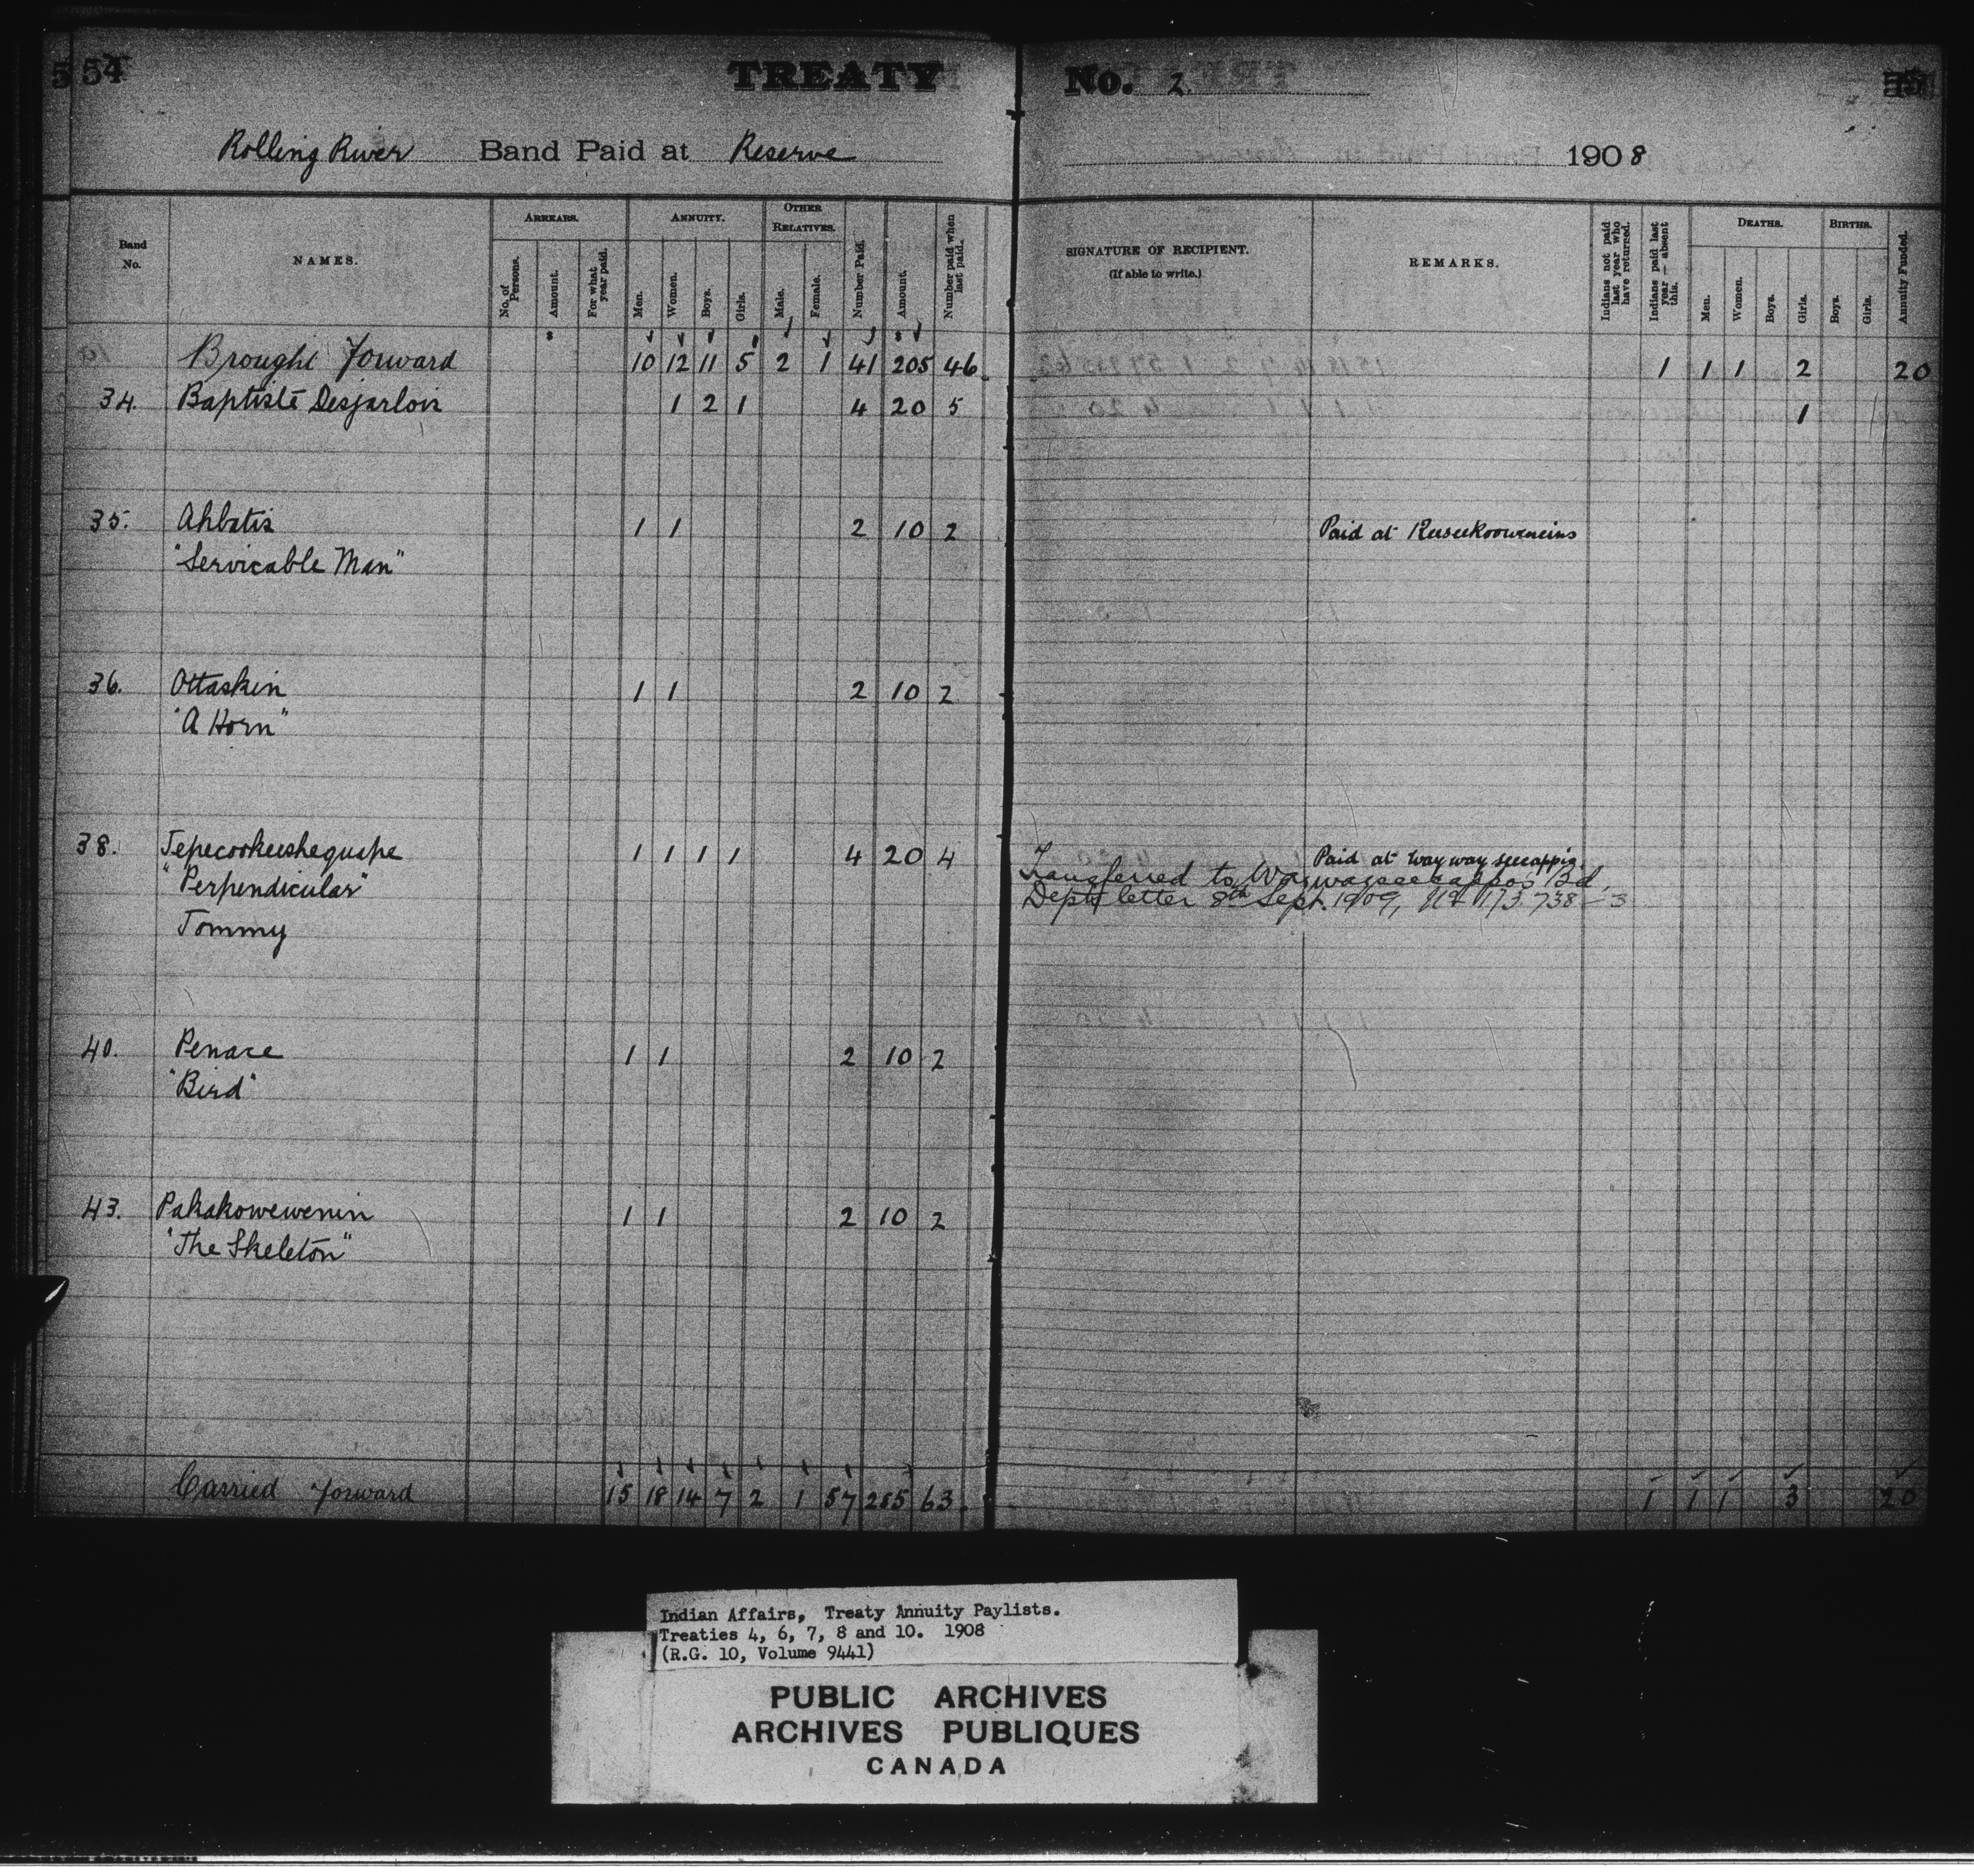 54
TREATY No. 2.
Rolling River Band Paid at Reserve 1908
Band No. NAMES. ARREARS. No. of Persons. Amount. For what year paid. ANNUITY. Men. Women. Boys. Girls. OTHER RELATIVES. Male. Female. Number Paid. Amount. Number paid when last paid. SIGNATURE OF RECIPIENT. (If able to write.) REMARKS. Indians not paid last year who have returned. Indians paid last year — absent this. DEATHS. Men. Women. Boys. Girls. BIRTHS. Boys. Girls. Annuity Funded.
Brought Forward 10 12 11 5 2 1 41 205 46 1 1 1 2 20
34. Baptiste Desjarlois 1 2 1 4 20 5 1
35. Ahbatis 1 1 2 10 2 Paid at Keeseekoowenins
"Servicable Man"
36. Ottaskin 1 1 2 10 2
"A Horn"
38. Tepecookeeshequape 1 1 1 1 4 20 4 Paid at Waywayseecappis
Transferred to Waywayseecappo's Bd.
"Perpendicular" Dept letter 8th Sept. 1909, 173.738-3
Tommy
40. Penace 1 1 2 10 2
"Bird"
43. Pakakowewenin 1 1 2 10 2
"The Skeleton"
Carried Forward 15 18 14 7 2 1 57 285 63 1 1 1 3 20
Indian Affairs, Treaty Annuity Paylists.
Treaties 4, 6, 7, 8 and 10. 1908
(R.G. 10, Volume 9441)
PUBLIC ARCHIVES
ARCHIVES PUBLIQUES
CANADA